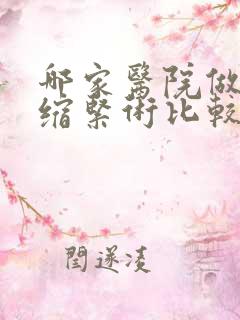 邮家醫院做
缩緊術比較
閆遂凌